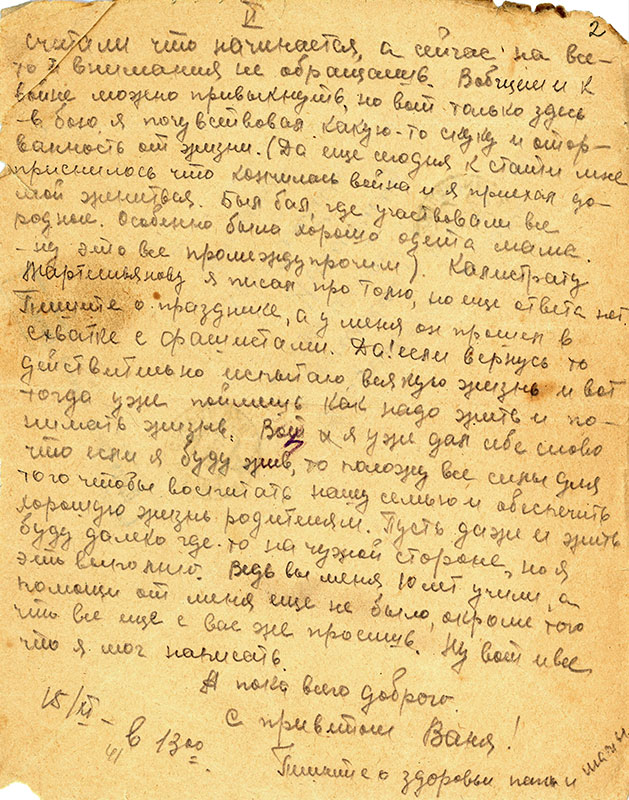 II
2
считали что начинается, а сейчас на все-
то и внимания не обращаешь. Вобщем и к
войне можно привыкнуть, но вот только здесь
-в бою я почувствовал какую-то скуку и отор-
ванность от жизни. (Да еще сегодня к стати мне
приснилось что кончилась война и я приехал до-
мой жениться. Был бал, где участвовали все
родные. Особенно была хорошо одета мама.
- ну это все промеждупрочим). Калистрату
Мартемьянову я писал про Толю, но еще ответа нет.
Пишите о празднике, а у меня он прошел в
схватке с фашистами. Да! если вернусь то
действительно испытаю всякую жизнь и вот
тогда уже поймешь как надо жить и по-
нимать жизнь. Вот и я уже дал себе слово
что если я буду жив, то положу все силы для
того чтобы воспитать нашу семью и обеспечить
хорошую жизнь родителям. Пусть даже и жить
буду далеко где-то на чужой стороне, но я
это выполню. Ведь вы меня 10 лет учили, а
помощи от меня еще не было, окроме того
что все еще с вас же просишь. Ну вот и все
что я мог написать.
А пока всего доброго.
15/XI-
41
в 13 00.
С приветом Ваня!
Пишите о здоровьи папы и мамы.